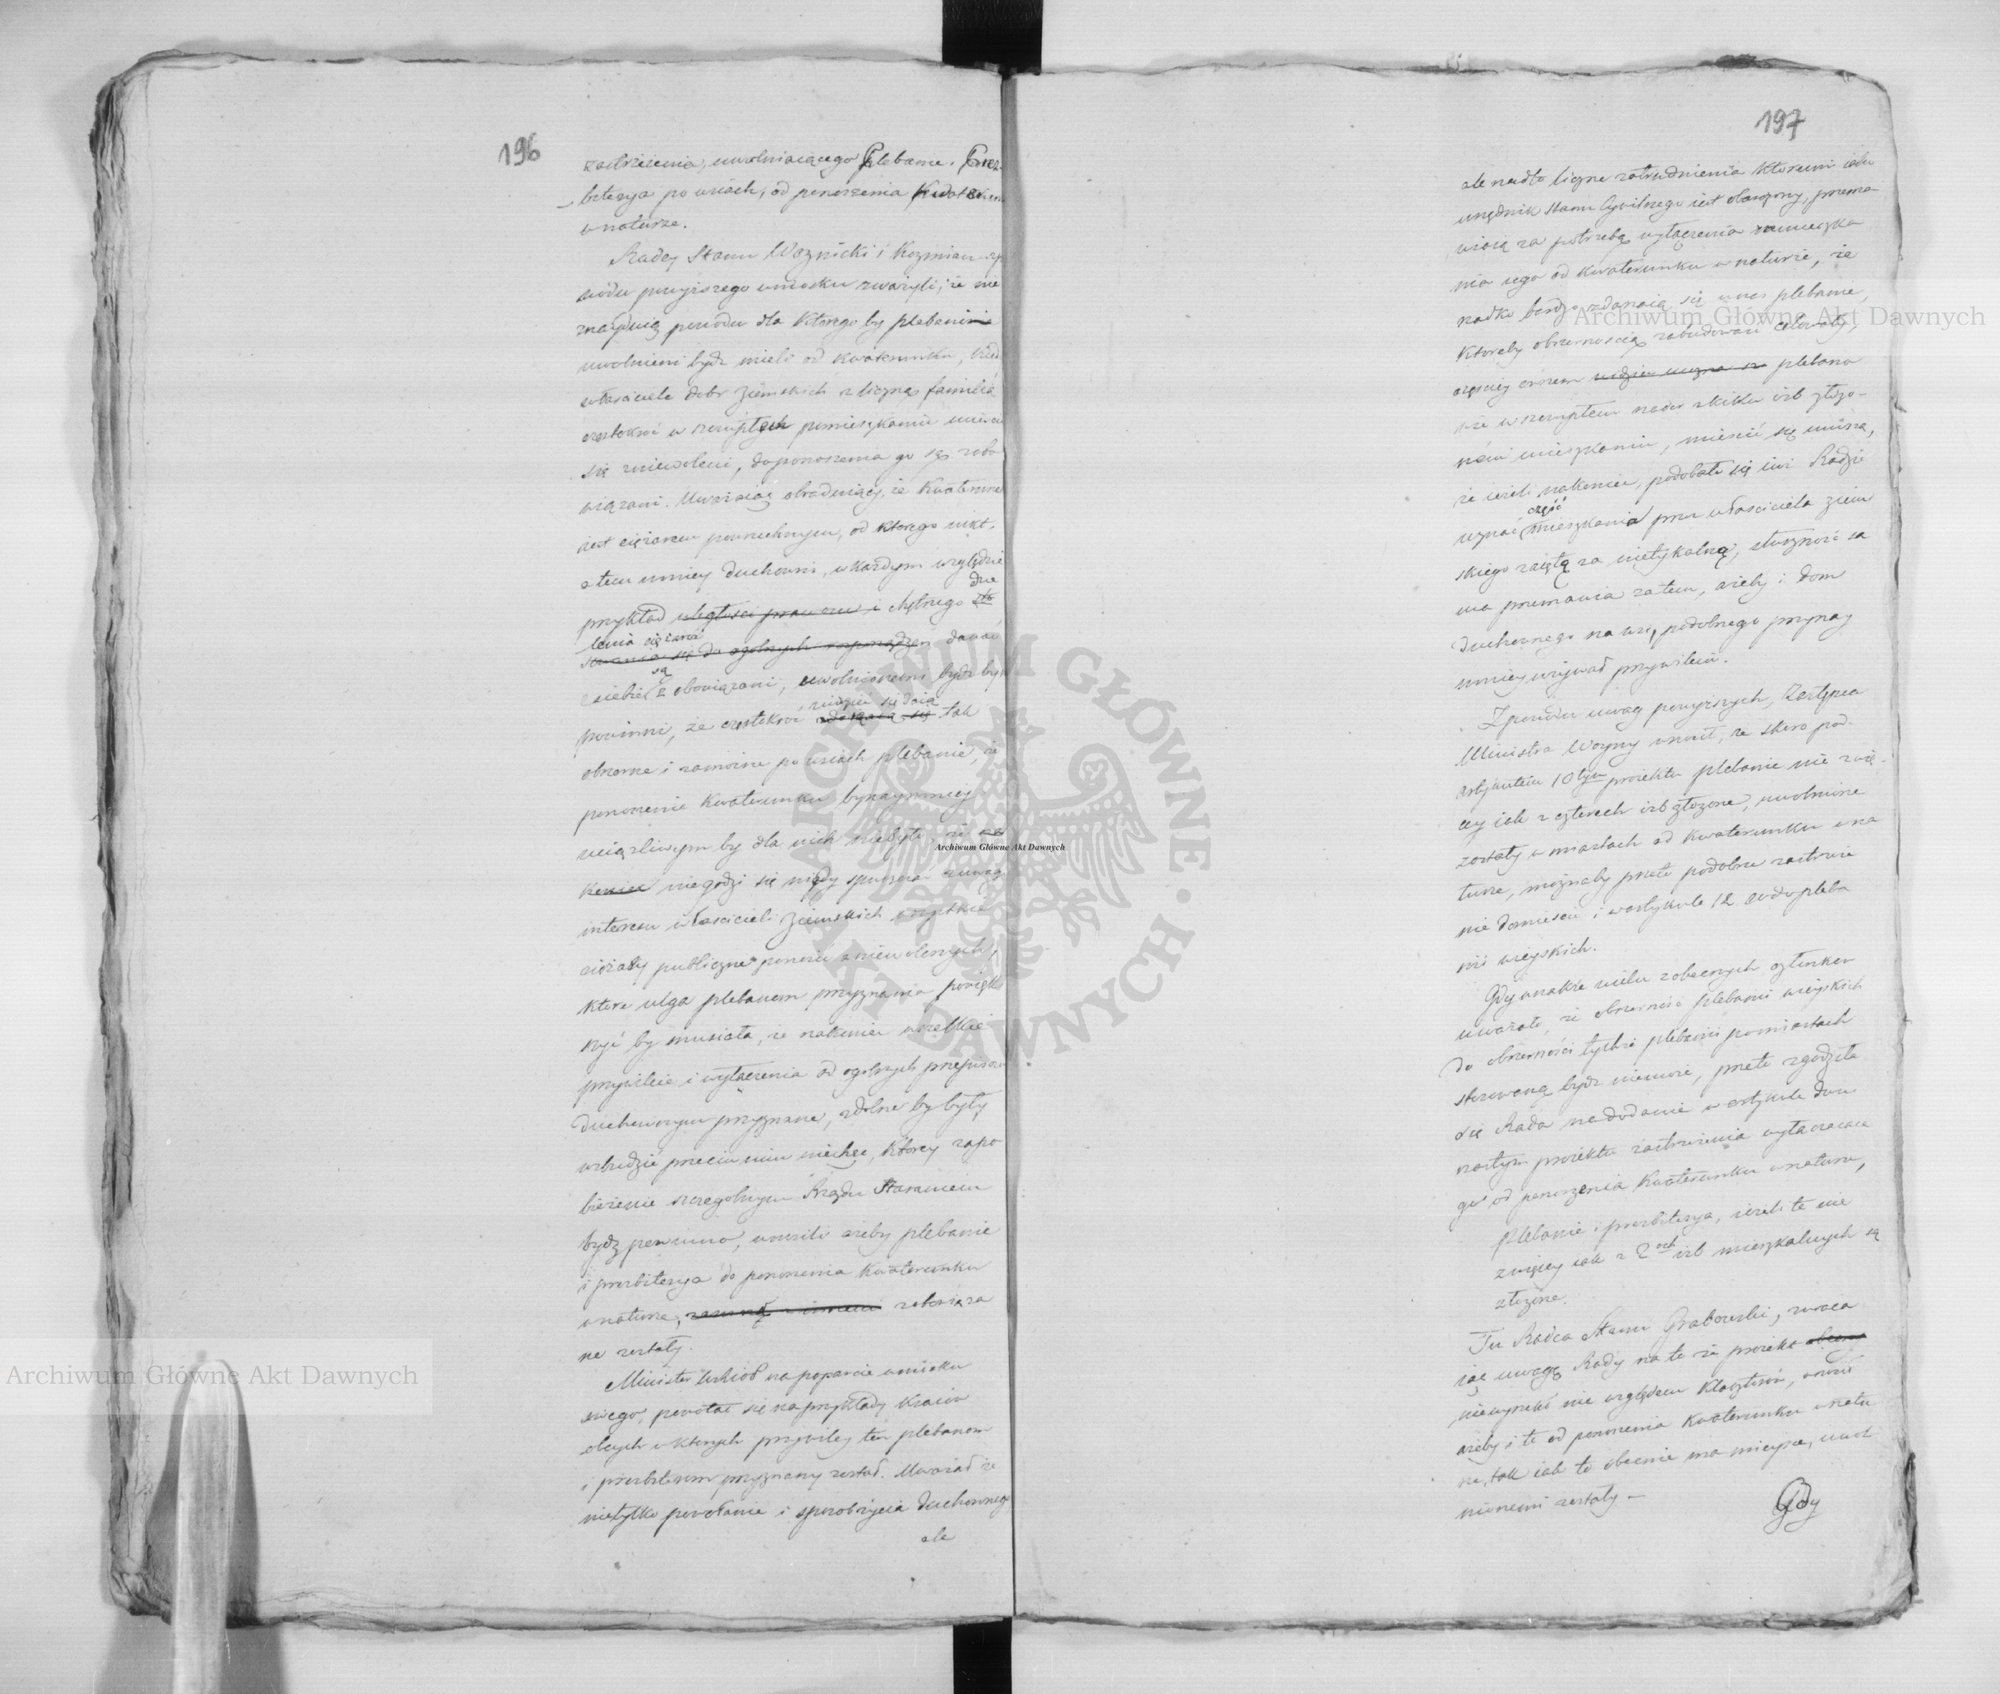 196
zastrzeżenia, uwalniaiącego Plebanie i Prez-
biterya po wsiach, od ponoszenia Kwaterun
w naturze.
Radcy Stanu Woznicki i Kozmian z po
wodu powyższego wniosku zważyli, że nie
znayduią powodu dla którego by plebani
uwolnieni bydź mieli od kwaterunku, kied
właściciele dobr ziemskich z liczną familią
częstokroć w szczupłych pomieszkaniu mieścić
się zniewoleni, do ponoszenia go są zobo
wiązani. Uważaiąc obradniący, że Kwaterune
iest ciężarem powszechnym, od którego nikt,
a tem mniey Duchowni, w każdym względzie
przykład uległości prawom i chętnego dźwi
lenia ciężarów
stosowania się do ogolnych rozporządzeń dawać
są
z siebie obowiązani, uwolnionemi bydź by
powinni, że częstokroć widzieć się daią tak
obszerne i zamożne po wsiach plebanie, że
ponoszenie Kwaterunku bynaymniey
uciążliwym by dla nich niebyło, że na
koniec niegodzi się nigdy spuszczać z uwag
interesu właścicieli ziemskich wszystkie
ciężary publiczne ponosić zniewolonych,
które ulga plebanom przyznana powięk
szyć by musiała, że nakoniec wszelkie
przywileie i wyłączenia od ogolnych przepisow
Duchownym przyznane, zdolne by były
wzbudzić przeciw nim niechęć, którey zapo
bieżenie szczegolnym Rządu staraniem
bydź powinno, wnosili ażeby plebanie
i prezbiterya do ponoszenia Kwaterunku
w naturze, zarówno z innemi zobowiąza
ne zostały.
Minister na poparcie wniosku
swego, powołał się na przykłady Kraiów
obcych w których przywiley ten plebanom
i prezbiterom przyznany został. Uważał że
nietylko powołanie i sposob życia Duchownego
ale
197
ale nadto liczne zatrudnienia któremi iako
urzędnik stanu Cywilnego iest obarczony, przema-
wiaią za potrzebą wyłączenia zamieszka
nia iego od kwaterunku w naturze, że
rzadko bardzo zdarzaią się u nas plebanie,
któreby obszernością zabudowań celowały,
częściey owszem widzieć można że plebana
się w szczupłem nader z kilku izb złożo-
nem mieszkaniu, mieścić się musza,
że ieżeli nakoniec, podobało się iuż Radzie
część
uznać mieszkania przez właściciela ziem
skiego zaiętą za nietykalną, słuszność sa
ma przemawia zatem, ażeby i dom
Duchownego na wsi, podobnego przynay
mniey używał przywileiu.
Z powodu uwag powyższych, Zastępca
Ministra Woyny wnosił, że skoro pod
artykułem 10tym proiektu plebanie nie z wię-
cey iak z czterech izb złożone, uwolnione
zostały w miastach od Kwaterunku w na
turze, możnaby przeto podobne zastrzeże
nie domieścić i w artykule 12. co do pleba
nii wieyskich.
Gdy wszakże wielu z obecnych członkow
uważało, że obszerność plebanii wieyskich
do obszerności tychże plebanii po miastach
stosowaną bydź niemoże, przeto zgodziła
się Rada na dodanie w artykule dwu
nastym proiektu zastrzeżenia wyłączaiące
go od ponoszenia Kwaterunku w naturze,
Plebanie i prezbiterya, ieżeli te nie
z więcey iak z 2och izb mieszkalnych są
złożone.
Tu Radca Stanu Grabowski, zwraca
iąc uwagę Rady na to że proiekt
niewyrzekł nic względem Klasztorów, wnosił
ażeby i te od ponoszenia Kwaterunku w natu
rze, tak iak to obecnie ma mieysce, uwol
nionemi zostały –
Gdy
Archiwum Główne Akt Dawnych
Archiwum Główne Akt Dawnych
Archiwum Główne Akt Dawnych
ARCHIWUM GŁÓWNE · AKT DAWNYCH ·